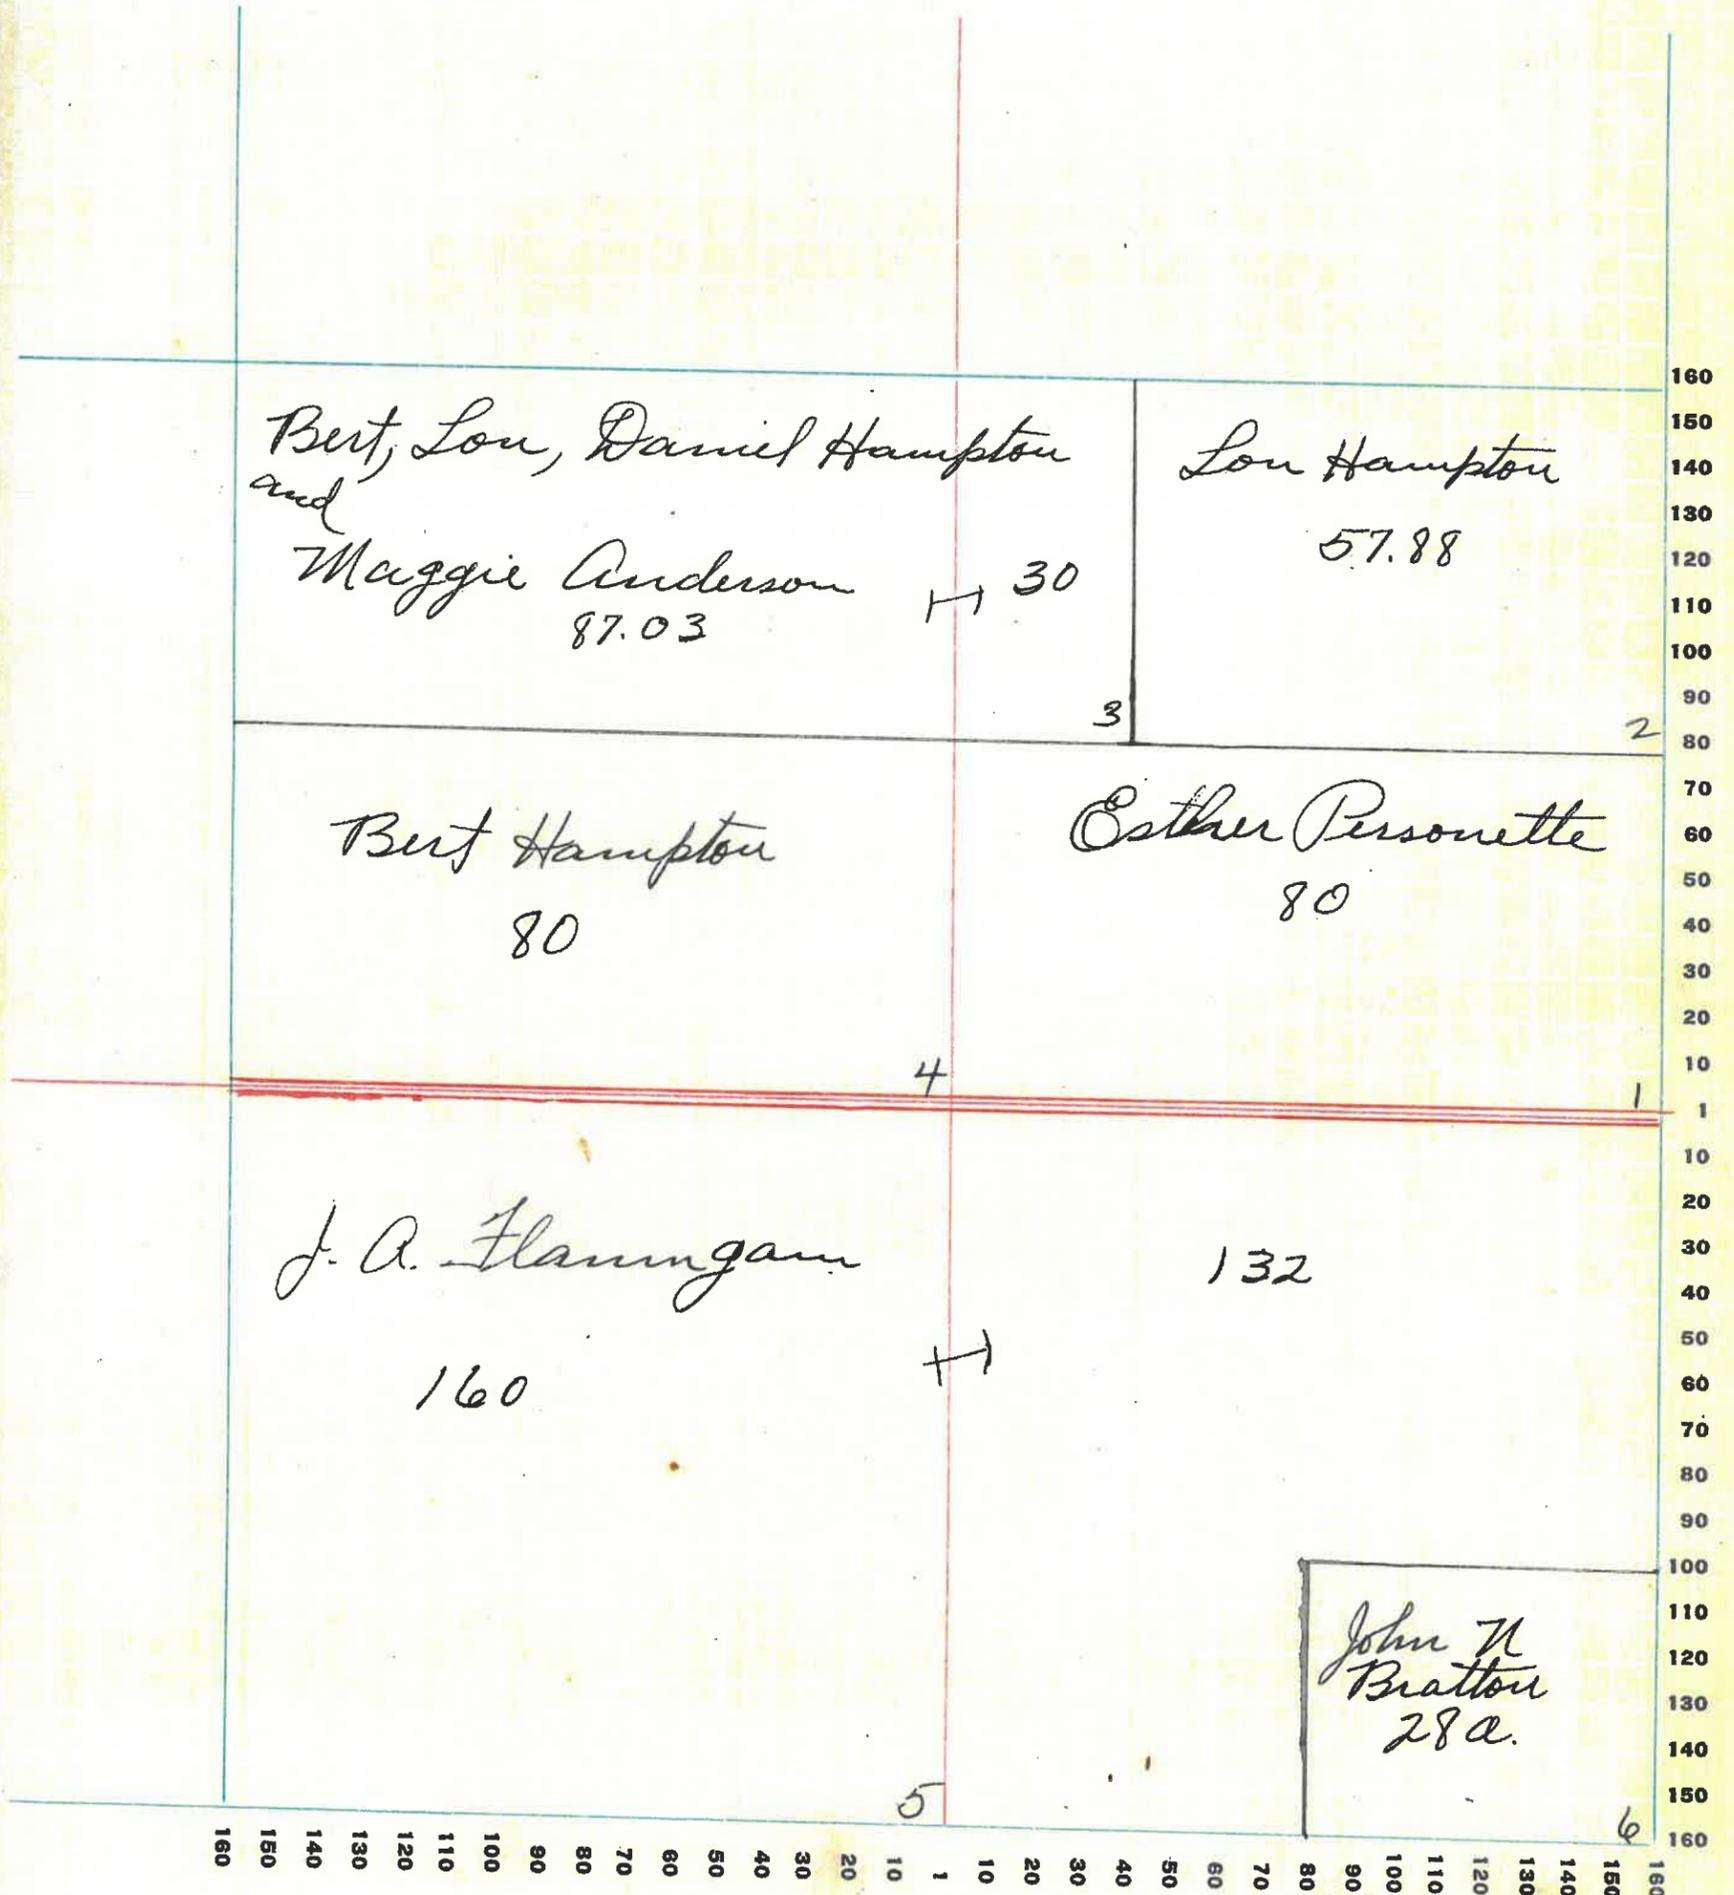 Bert, Lon, Daniel Hampton
and
Maggie Anderson
87.03
30
3
Lon Hampton
57.88
2
Bert Hampton
80
4
Esther Personette
80
1
J. A. Flaningam
160
5
132
John N
Bratton
28 a.
6
160
150
140
130
120
110
100
90
80
70
60
50
40
30
20
10
1
10
20
30
40
50
60
70
80
90
100
110
120
130
140
150
160
160 150 140 130 120 110 100 90 80 70 60 50 40 30 20 10 1 10 20 30 40 50 60 70 80 90 100 110 120 130 140 150 160